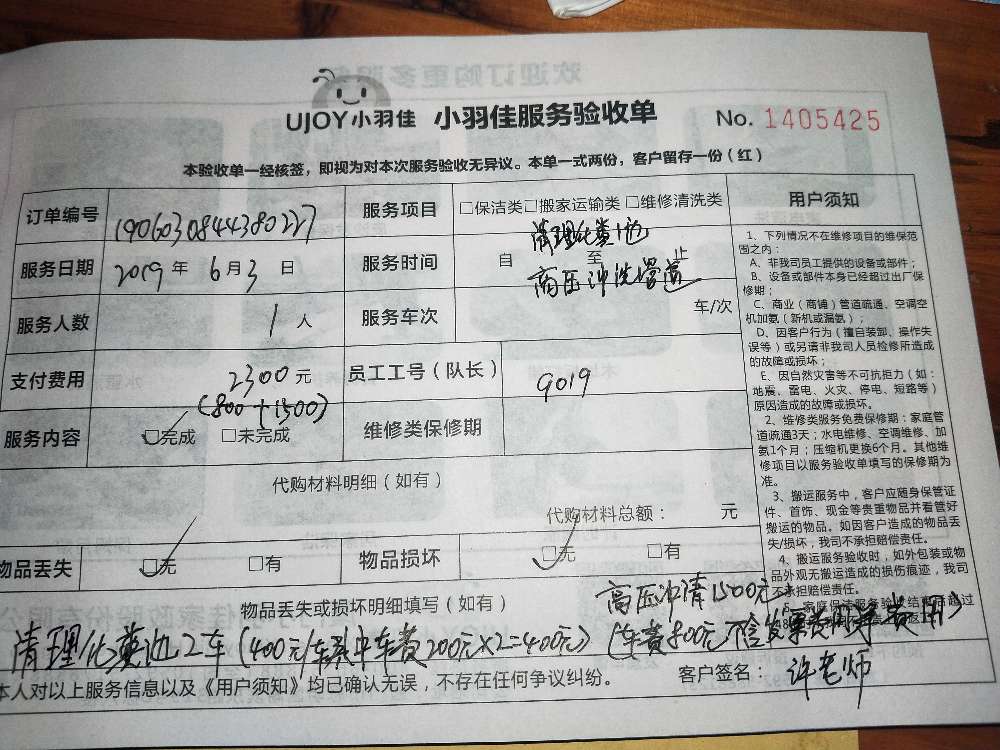 UJOY小羽佳 小羽佳服务验收单 No. 1405425
本验收单一经核签，即视为对本次服务验收无异议。本单一式两份，客户留存一份（红）
订单编号 1906030844380227 服务项目 □保洁类□搬家运输类□维修清洗类
清理化粪池
服务日期 2019年6月3日 服务时间 自 至 止
高压冲洗管道
服务人数 1人 服务车次 车/次
支付费用 2300元 员工工号（队长） 9019
(800+1500)
服务内容 □完成 □未完成 维修类保修期
代购材料明细（如有）
代购材料总额： 元
物品丢失 □无 □有 物品损坏 □无 □有
物品丢失或损坏明细填写（如有）
高压冲清1500元
清理化粪池2车(400元/车其中车费200元×2=400元)(车费800元不含发票费用
本人对以上服务信息以及《用户须知》均已确认无误，不存在任何争议纠纷。 客户签名： 许老师
用户须知
1、下列情况不在维修项目的维保范
围之内：
A、非我司员工提供的设备或部件；
B、设备或部件本身已经超过出厂保
修期；
C、商业（商铺）管道疏通、空调空
机加氨（新机或漏氨）；
D、因客户行为（擅自装卸、操作失
误等）或另请非我司人员检修所造成
的故障或损坏；
E、因自然灾害等不可抗拒力（如：
地震、雷电、火灾、停电、短路等）
原因造成的故障或损坏。
2、维修类服务免费保修期：家庭管
道疏通3天；水电维修、空调维修、加
氨1个月；压缩机更换6个月。其他维
修项目以服务验收单填写的保修期为
准。
3、搬运服务中，客户应随身保管证
件、首饰、现金等贵重物品并看管好
搬运的物品。如因客户造成的物品丢
失/损坏，我司不承担赔偿责任。
4、搬运服务验收时，如外包装或物
品外观无搬运造成的损伤痕迹，我司
不承担赔偿责任。
5、家庭保洁服务验收结束后超过